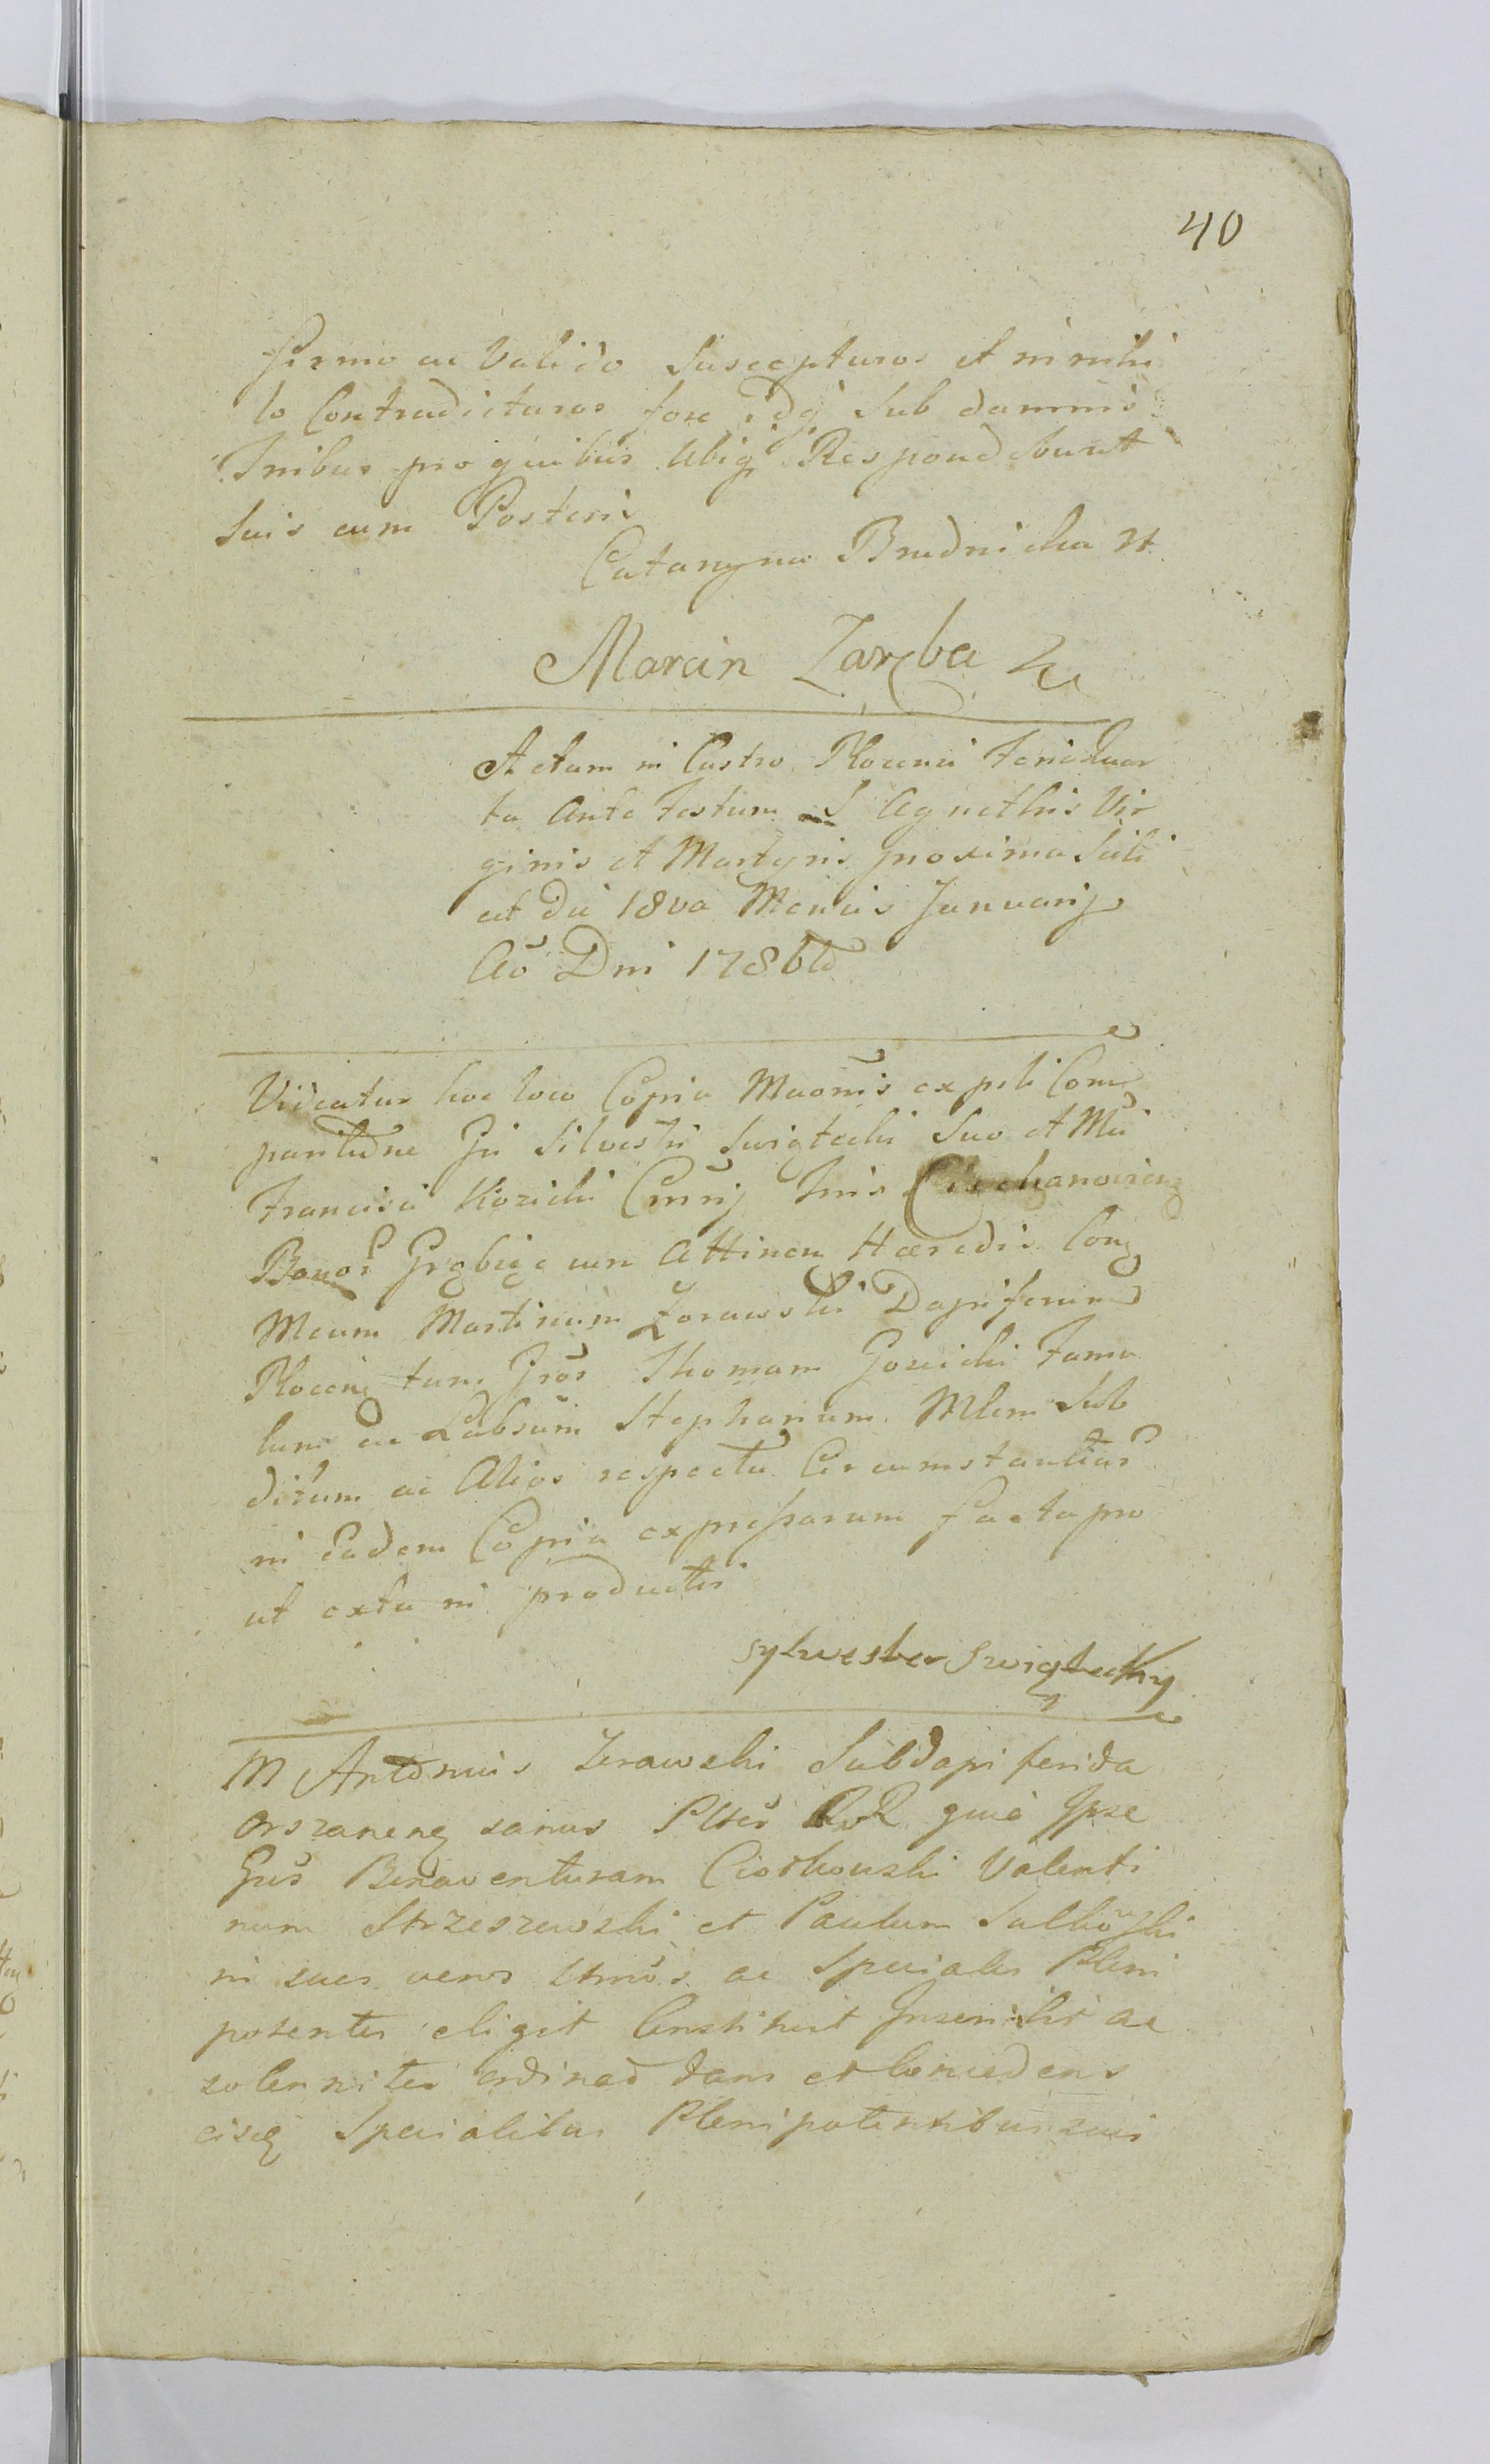 40
firmo ac Valido Suscepturos et in nihi
lo Contradicturos fore idq Sub damnis
Tribus pro quibus Ubiq Respondebunt
Suis cum Posteris
Catarzyna Brudnicka
Marcin Zaręba
Actum in Castro Plocensi Feria Quar
ta Ante Festum S Agnethis Vir
ginis et Martyris proxima Scili
cet die 18va Mensis Januarij
Ao Dni 1786to
Videatur hoc loco Copia Maonis ex pste Com
Silvestri Swiętecki Suo et
Francisci Kozicki Ciechanovieng
Bonor cum Attinen Hæredis Cong
Mcum Martinum Żorawski Dapiferum
Ploceng tum Gros Thomam Gosicki Famu
lum ac Labsum Stephanum Mlem Sub
ditum ac Alios respectu Circumstantiar
in Eadem Copia expressarum facta pro
ut extu in productis
Sylwester Swięthecky
M Antonius Zerawski Subdapiferida
Orszaneng sanus Ptter RR quia Ipse
Gros Bonaventuram Ciotkowski Valenti
num Strzeszewski et Paulum Sulkowski
in suos veros ac Speciales Pleni
potentes eligit Constituit Inscribit ac
solenniter ordinad dans et Concedens
eisq Specialibus Plenipotentibus suis